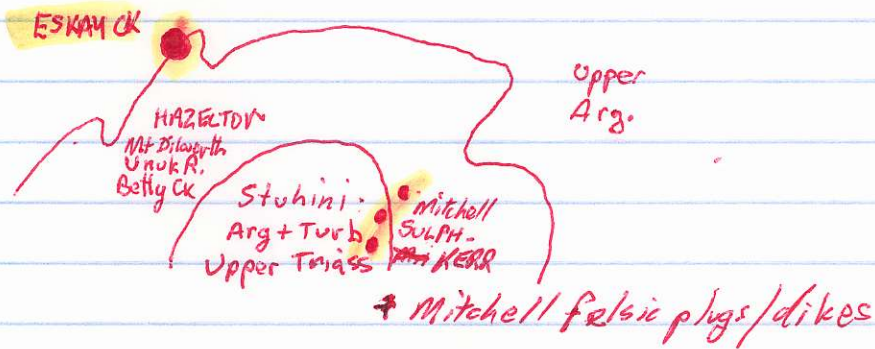 ESKAY CK
Upper
Arg.
HAZELTON
Mt Dilworth
Unuk R.
Betty CK
Stuhini:
Arg + Turb
Upper Triass
Mitchell
SULPH-
KERR
+ Mitchell felsic plugs/dikes